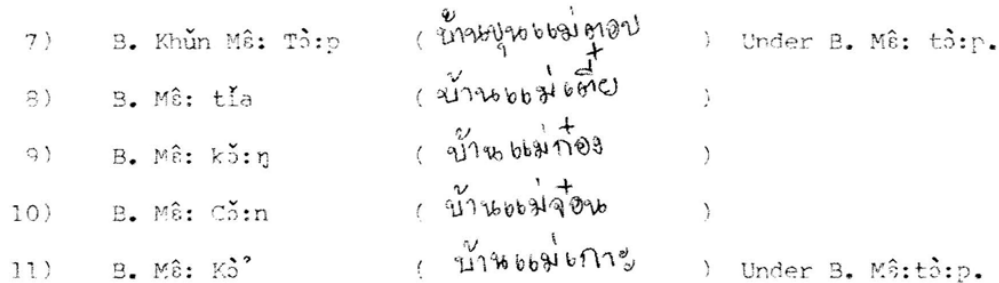 7) B. Khŭn Mɛ̂: Tɔ̀:p ( บ้านขุนแม่ตอบ ) Under B. Mɛ̂: tɔ̀:p.
8) B. Mɛ̂: tĭa ( บ้านแม่เตี๋ย )
9) B. Mɛ̂: kɔ̆:ŋ ( บ้านแม่ก๋อง )
10) B. Mɛ̂: Cɔ̆:n ( บ้านแม่จ๋อน )
11) B. Mɛ̂: Kɔ̀ˀ ( บ้านแม่เกาะ ) Under B. Mɛ̂:tɔ̀:p.